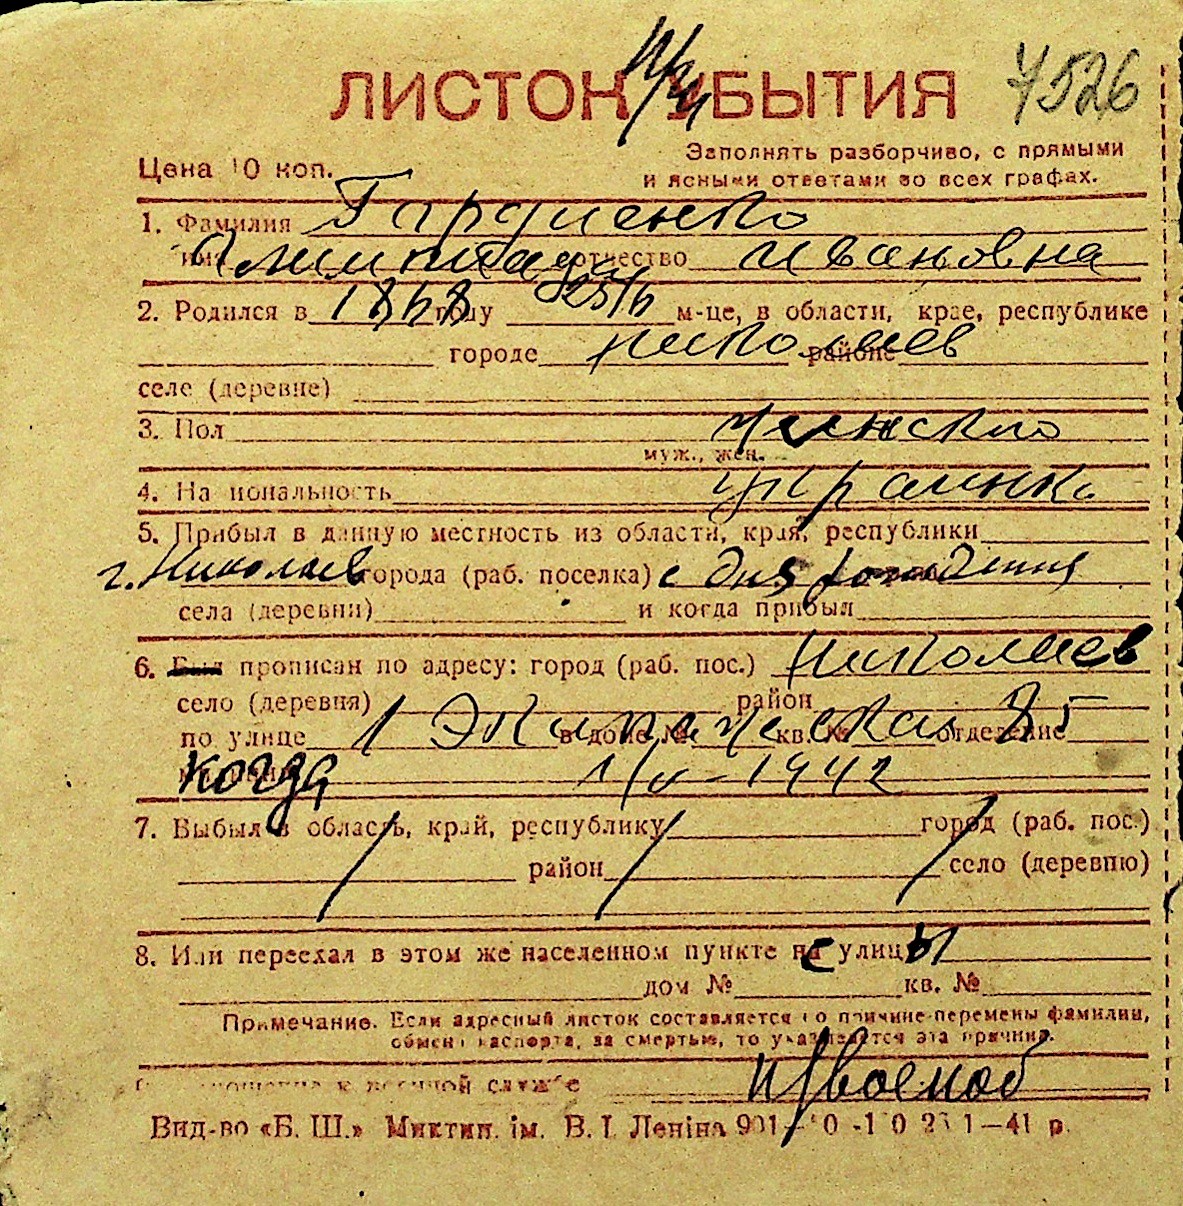 ЛИСТОК УБЫТИЯ 7526
Цена 10 коп.
Заполнять разборчиво, с прямыми
и ясными ответами во всех графах.
1. Фамилия Гордиенко
имя отчество Ивановна
2. Родился в 1868 году 25/6 м-це, в области, крае, республике
городе Николаев районе
селе (деревне)
3. Пол женского
муж., жен.
4. Национальность украинка
5. Прибыл в данную местность из области, края, республики
г. Николаев города (раб. поселка) с дня рождения
села (деревни) и когда прибыл
6. Был прописан по адресу: город (раб. пос.) Николаев
село (деревня) район
по улице 1 Экипажеская 85 в доме № кв. № отделение
когда 1942
7. Выбыл в область, край, республику город (раб. пос.)
район село (деревню)
8. Или переехал в этом же населенном пункте с улицы
дом № кв. №
Примечание. Если адресный листок составляется по причине перемены фамилии,
обмена паспорта, за смертью, то указывается эта причина.
отношение к военной службе н/военоб
Вид-во «Б. Ш.» Миктип. ім. В. І. Леніна 41 р.